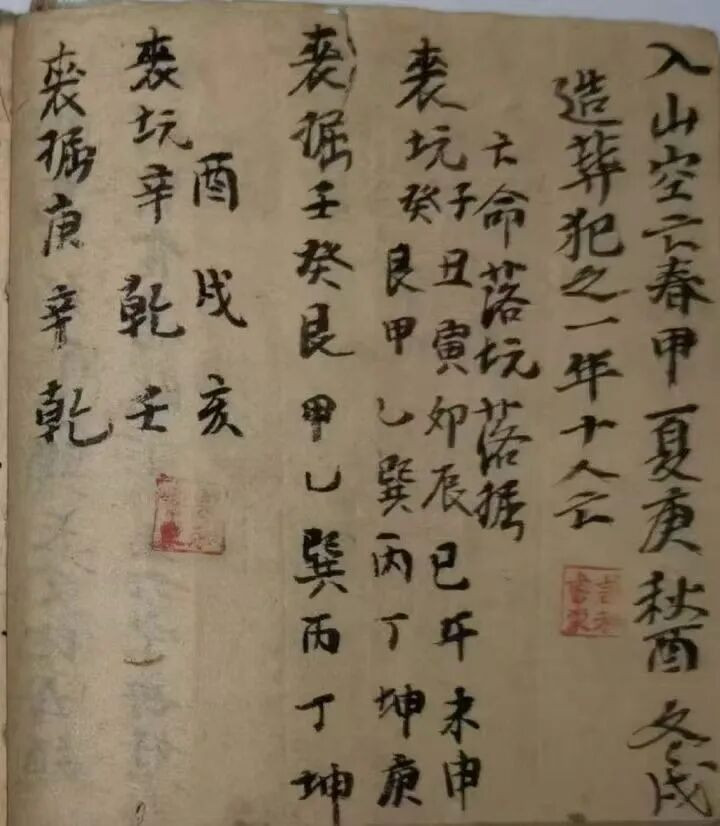 入山空亡春甲夏庚秋酉冬戌
造葬犯之一年十人亡
亡命落坑落掘
子丑寅卯辰巳午未申
丧坑癸艮甲乙巽丙丁坤庚
丧掘壬癸艮甲乙巽丙丁坤
酉戌亥
丧坑辛乾壬
丧掘庚辛乾